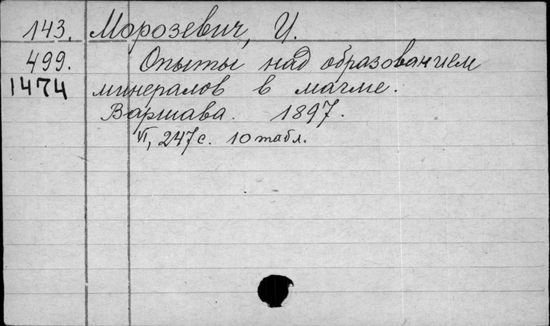 143. Морозевич, И.
499. Опыты над образованием
1474 минералов в магме.
Варшава. 1897.
VI, 247 с. 10 табл.